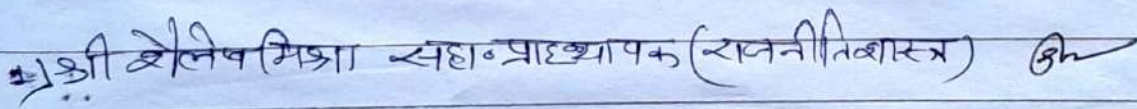 1) श्री शैलेष मिश्रा सहा॰ प्राध्यापक (राजनीतिशास्त्र)